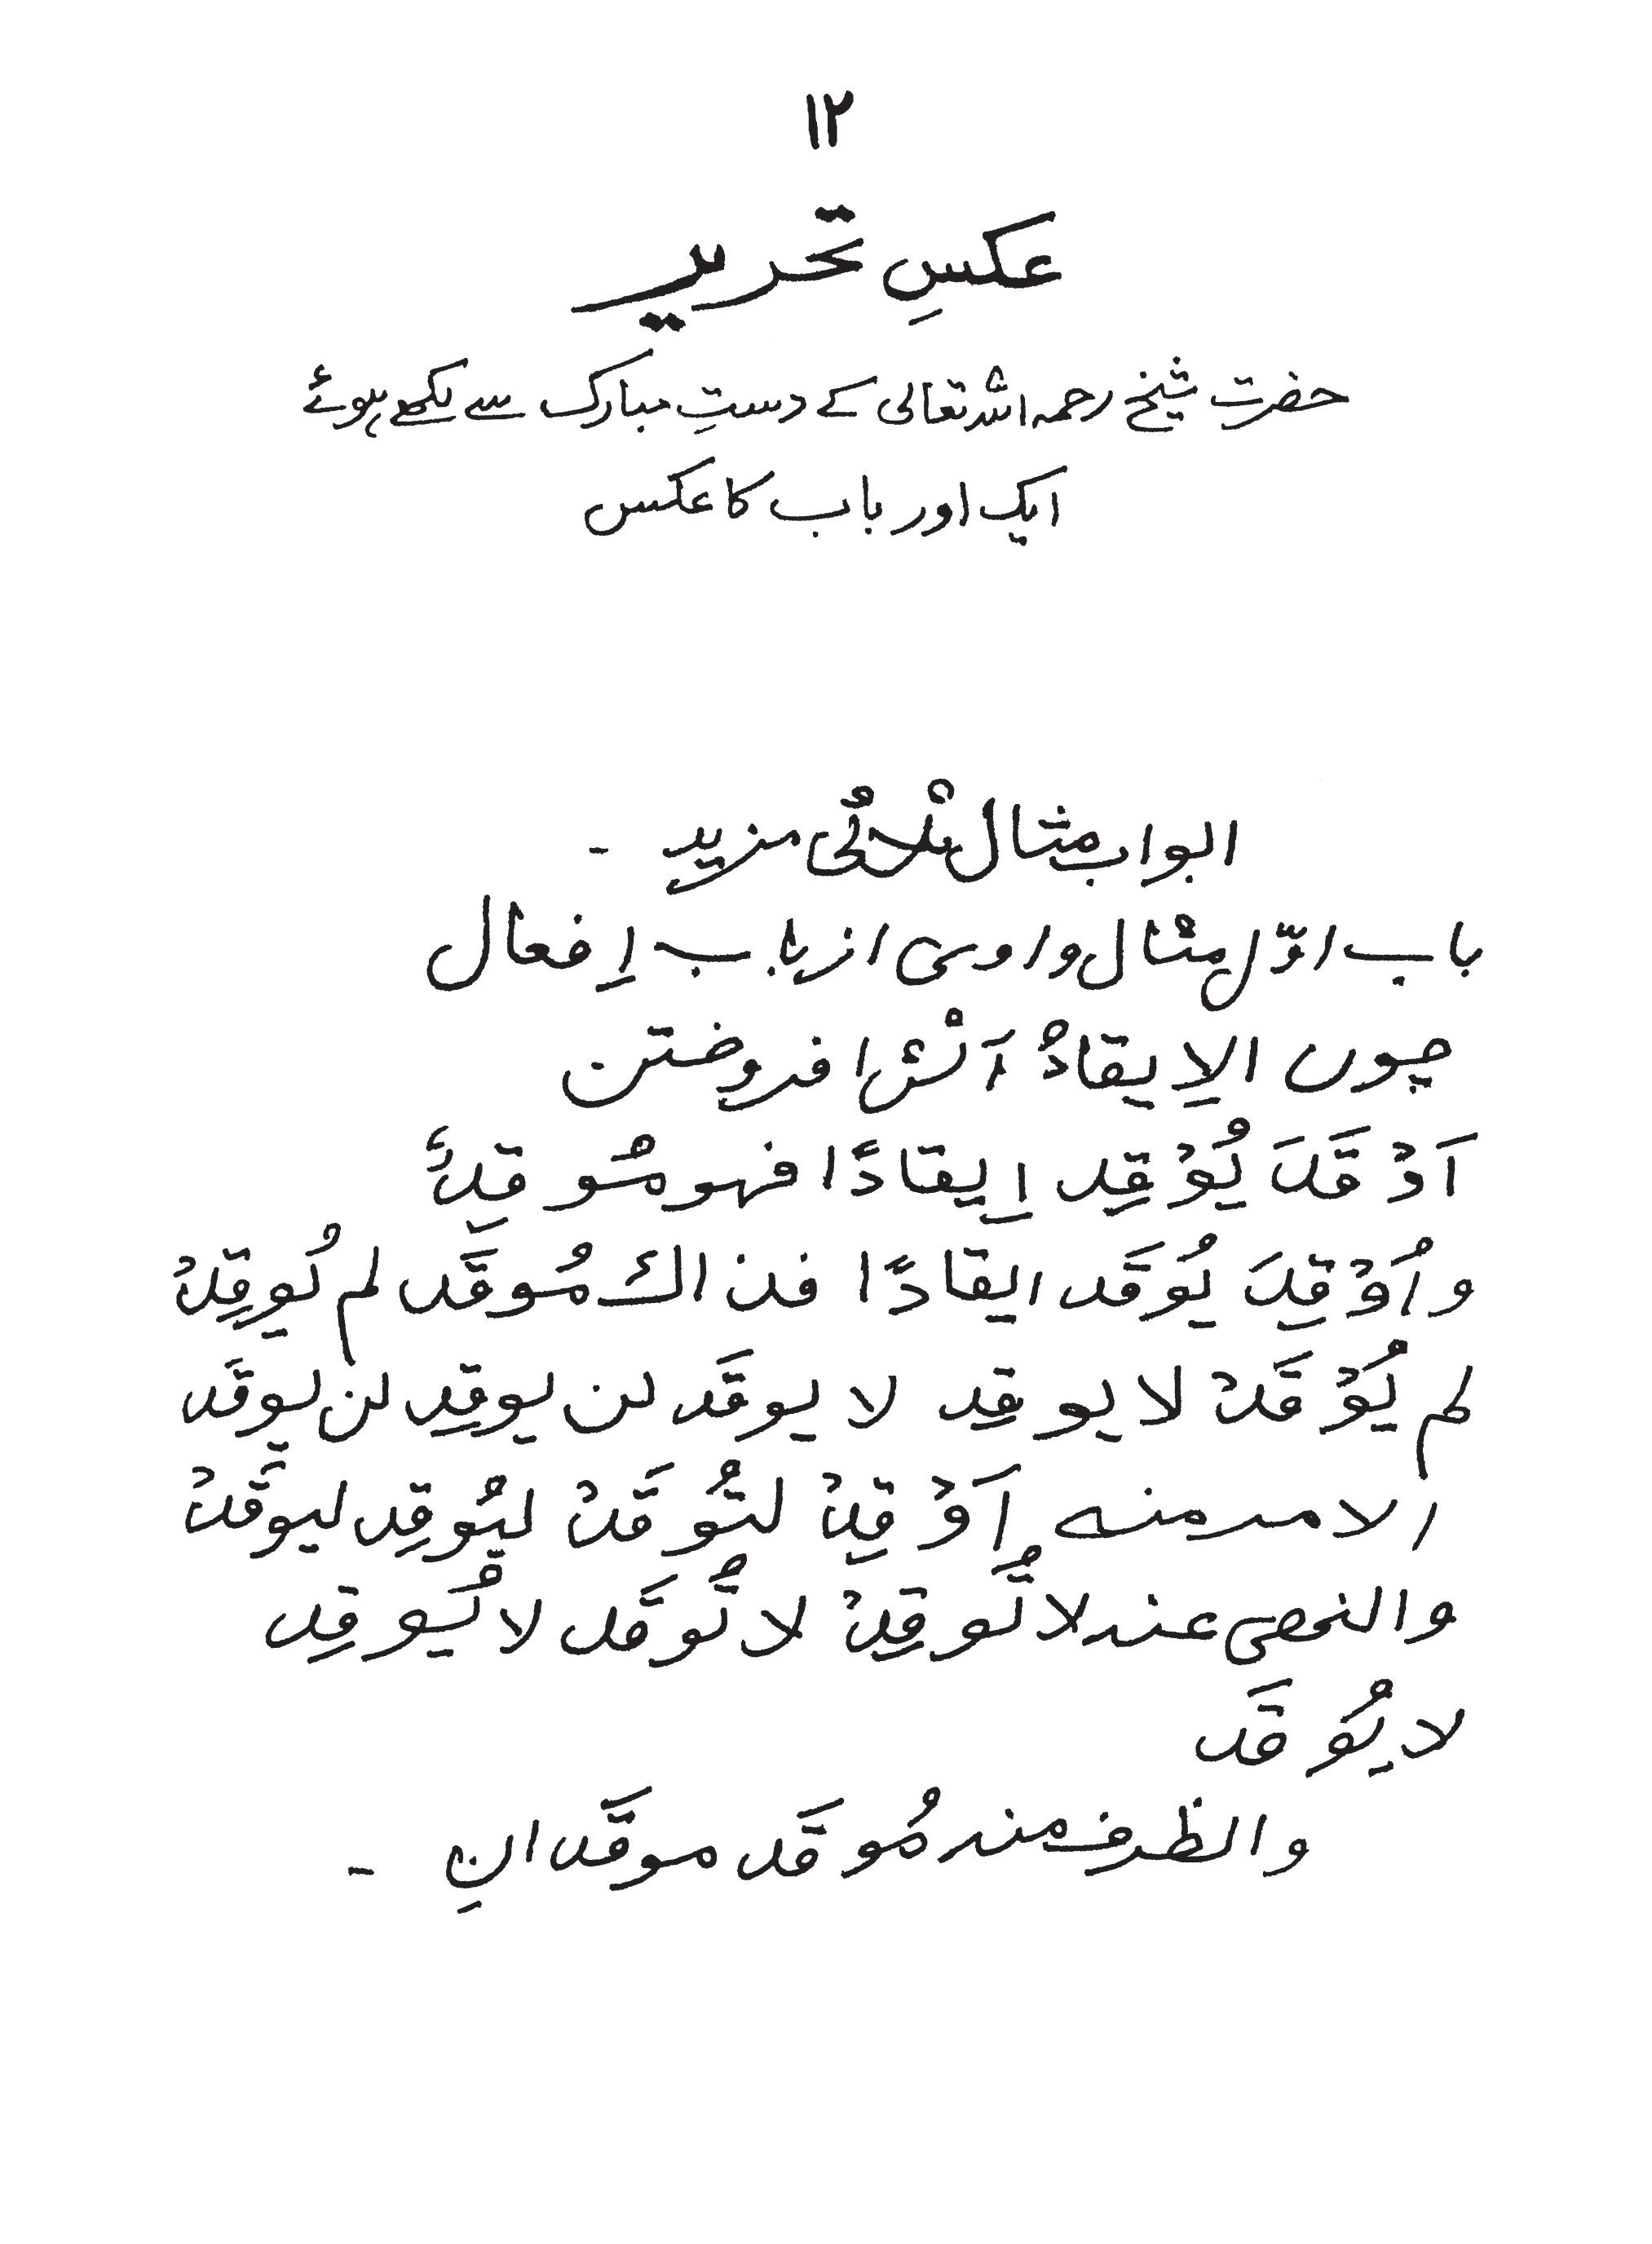 ۱۲
عکسِ تحریر
حضرت شیخ رحمہ اللہ تعالی کے دستِ مبارک سے لکھے ہوئے
ایک اور باب کا عکس
ابواب مثال ثلاثی مزید -
باب اوّل مثال واوی از باب اِفعال
چوں الاِیقادُ آتش افروختن
اَوْقَدَ یُوْقِد اِیقادًا فہو مُوقِدٌ
و اُوْقِدَ یُوقَد ایقادًا فذاك مُوقَد لم یُوقِدْ
لم یُوْقَدْ لا یوقِد لا یوقَد لن یوقِد لن یوقَد
الامر منه اَوْقِدْ لتُوقَدْ لیُوقِد لیوقَدْ
والنھی عنه لا تُوقِدْ لا تُوقَد لا یُوقِد
لا یُوقَد
والظرف منه مُوقَد موقَدانِ -